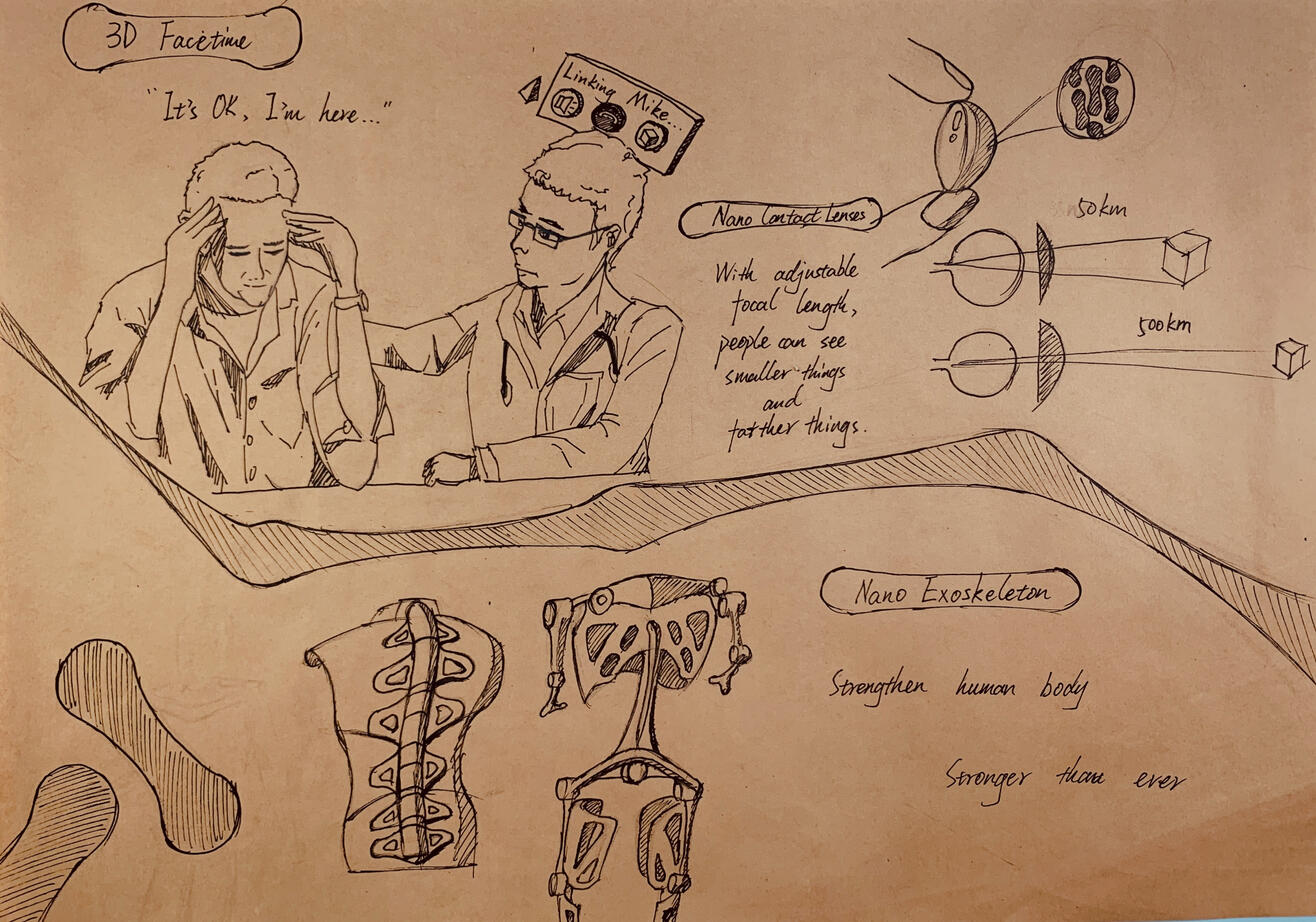 3D Facetime
"It's OK, I'm here..."
Linking Mike...
Nano Contact Lenses
With adjustable
focal length,
people can see
smaller things
and
farther things.
50km
500km
Nano Exoskeleton
Strengthen human body
Stronger than ever